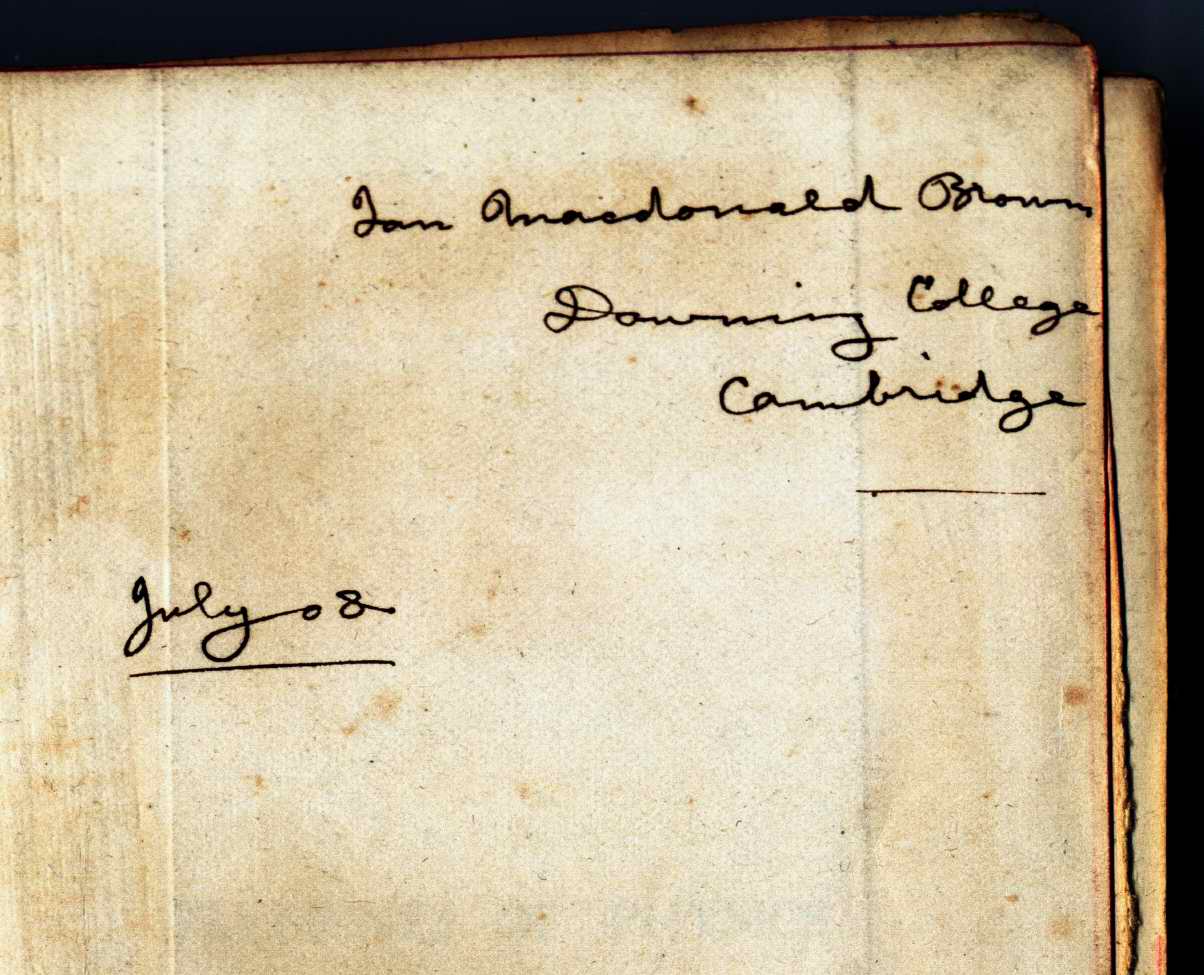 Ian Macdonald Brown
Downing College
Cambridge
July 08